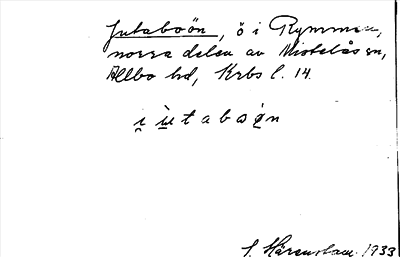 Jutaboön, ö i Rymmen,
norra delen av Mistelås sn,
Allbo hd, Krbs l. 14.
i ùtaboǿn
S. Härenstam 1933